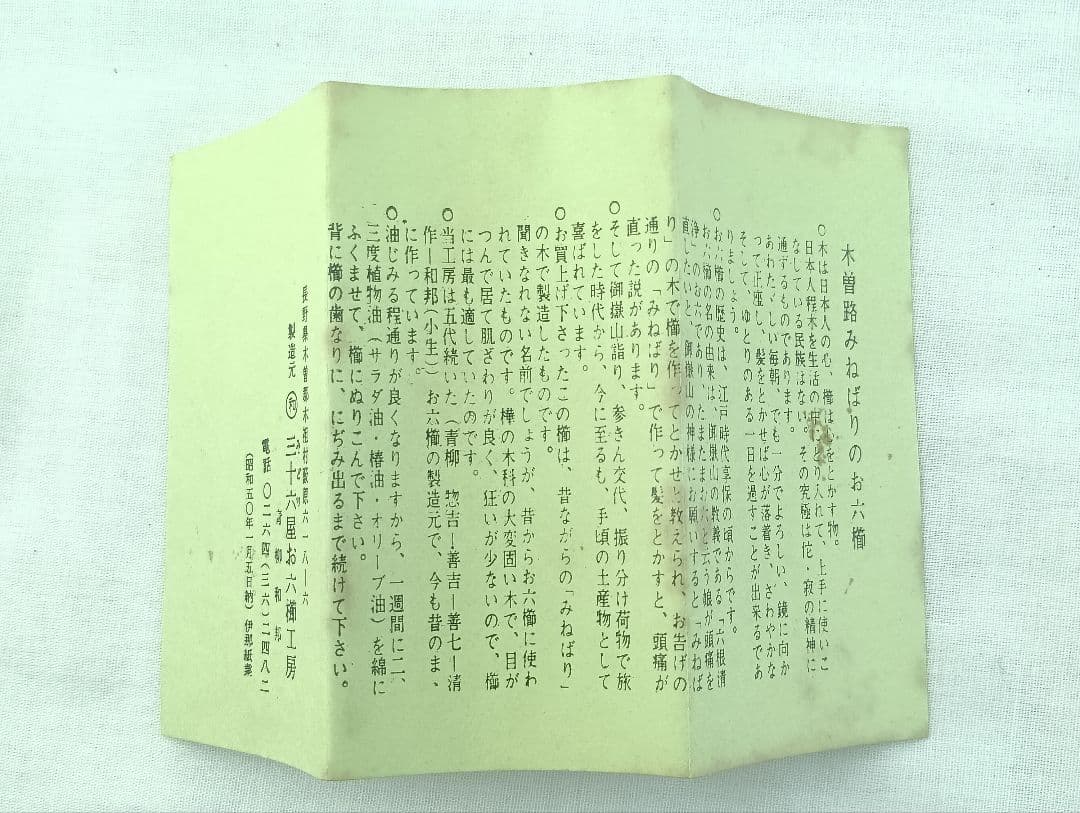 木曽路みねばりのお六櫛
○木は日本人の心、櫛は髪をとかす物。
日本人程木を生活の中にとり入れて、上手に使いこ
なしている民族はない。その究極は侘・寂の精神に
通ずるものであります。
あわたゞしい毎朝、でも一分でよろしい、鏡に向か
って正座し、髪をとかせば心が落着き、さわやかな
そして、ゆとりのある一日を過すことが出来るであ
りましょう。
○お六櫛の歴史は、江戸時代享保の頃からです。
お六櫛の名の由来は、御嶽山の教義である「六根清
浄」のお六であり、たまたまお六と云う娘が頭痛を
直したいと、御嶽山の神様にお願いすると「みねば
り」の木で櫛を作ってとかせと教えられ、お告げの
通りの「みねばり」で作って髪をとかすと、頭痛が
直った説があります。
○そして御嶽山詣り、参きん交代、振り分け荷物で旅
をした時代から、今に至るも、手頃の土産物として
喜ばれています。
○お買上げ下さったこの櫛は、昔ながらの「みねばり」
の木で製造したものです。
聞きなれない名前でしょうが、昔からお六櫛に使わ
れていたものです。樺の木科の大変固い木で、目が
つんで居て肌ざわりが良く、狂いが少ないので、櫛
には最も適していたのです。
○当工房は五代続いた（青柳 惣吉―善吉―善七―清
作―和邦（小生））お六櫛の製造元で、今も昔のまゝ
に作っています。
○油じみる程通りが良くなりますから、一週間に二、
三度植物油（サラダ油・椿油・オリーブ油）を綿に
ふくませて、櫛にぬりこんで下さい。
背に櫛の歯なりに、にぢみ出るまで続けて下さい。
長野県木曽郡木祖村薮原六一八―六
製造元 和 三十六屋お六櫛工房
青柳和邦
電話 〇二六四（三六）二四八二
（昭和五〇年一月五日納）伊那紙業